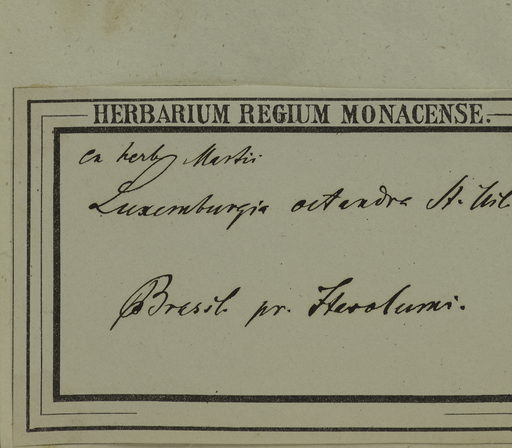 HERBARIUM REGIUM MONACENSE.
Ex herb. Martii
Luxemburgia octandra St. Hil
Brasil. pr. Itacolumi.